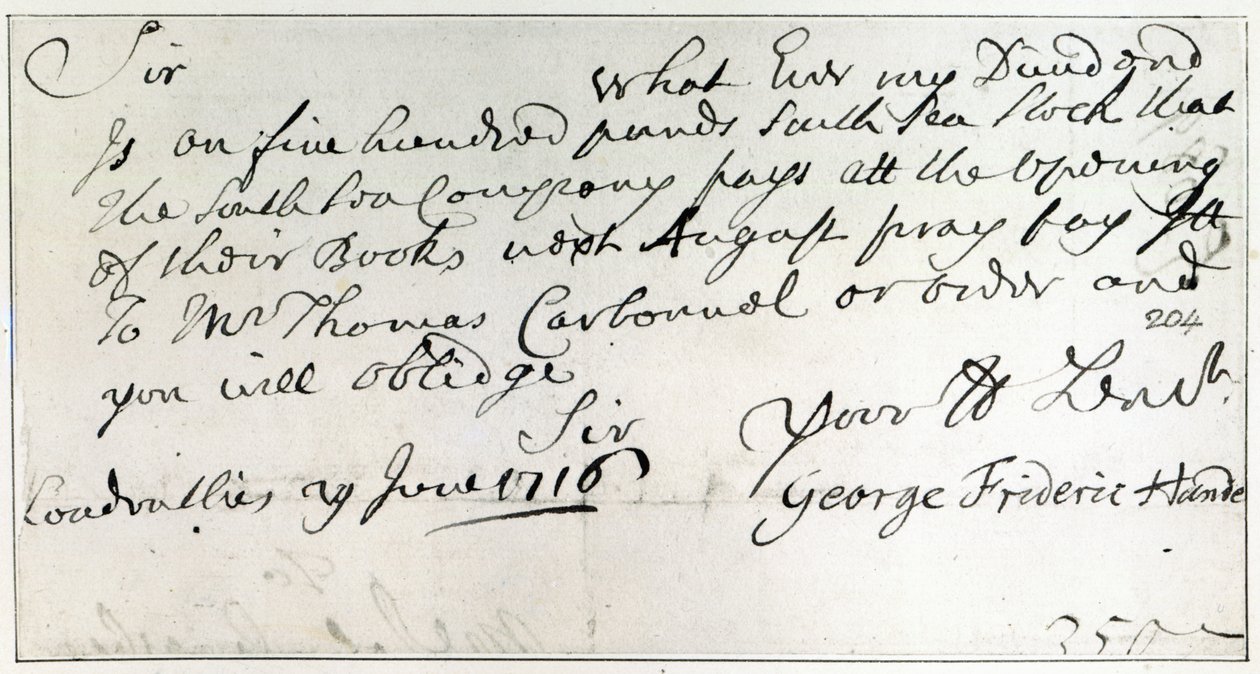 Sir
what Ever my Dividend
Is on five hundred pounds South Sea Stock that
The South Sea Company pays att the opening
of their Books next August pray pay Itt
To Mr Thomas Carbonnel or order and
204
you will oblidge
Sir
Your H Servt.
London this 29 June 1716
George Frideric Hande